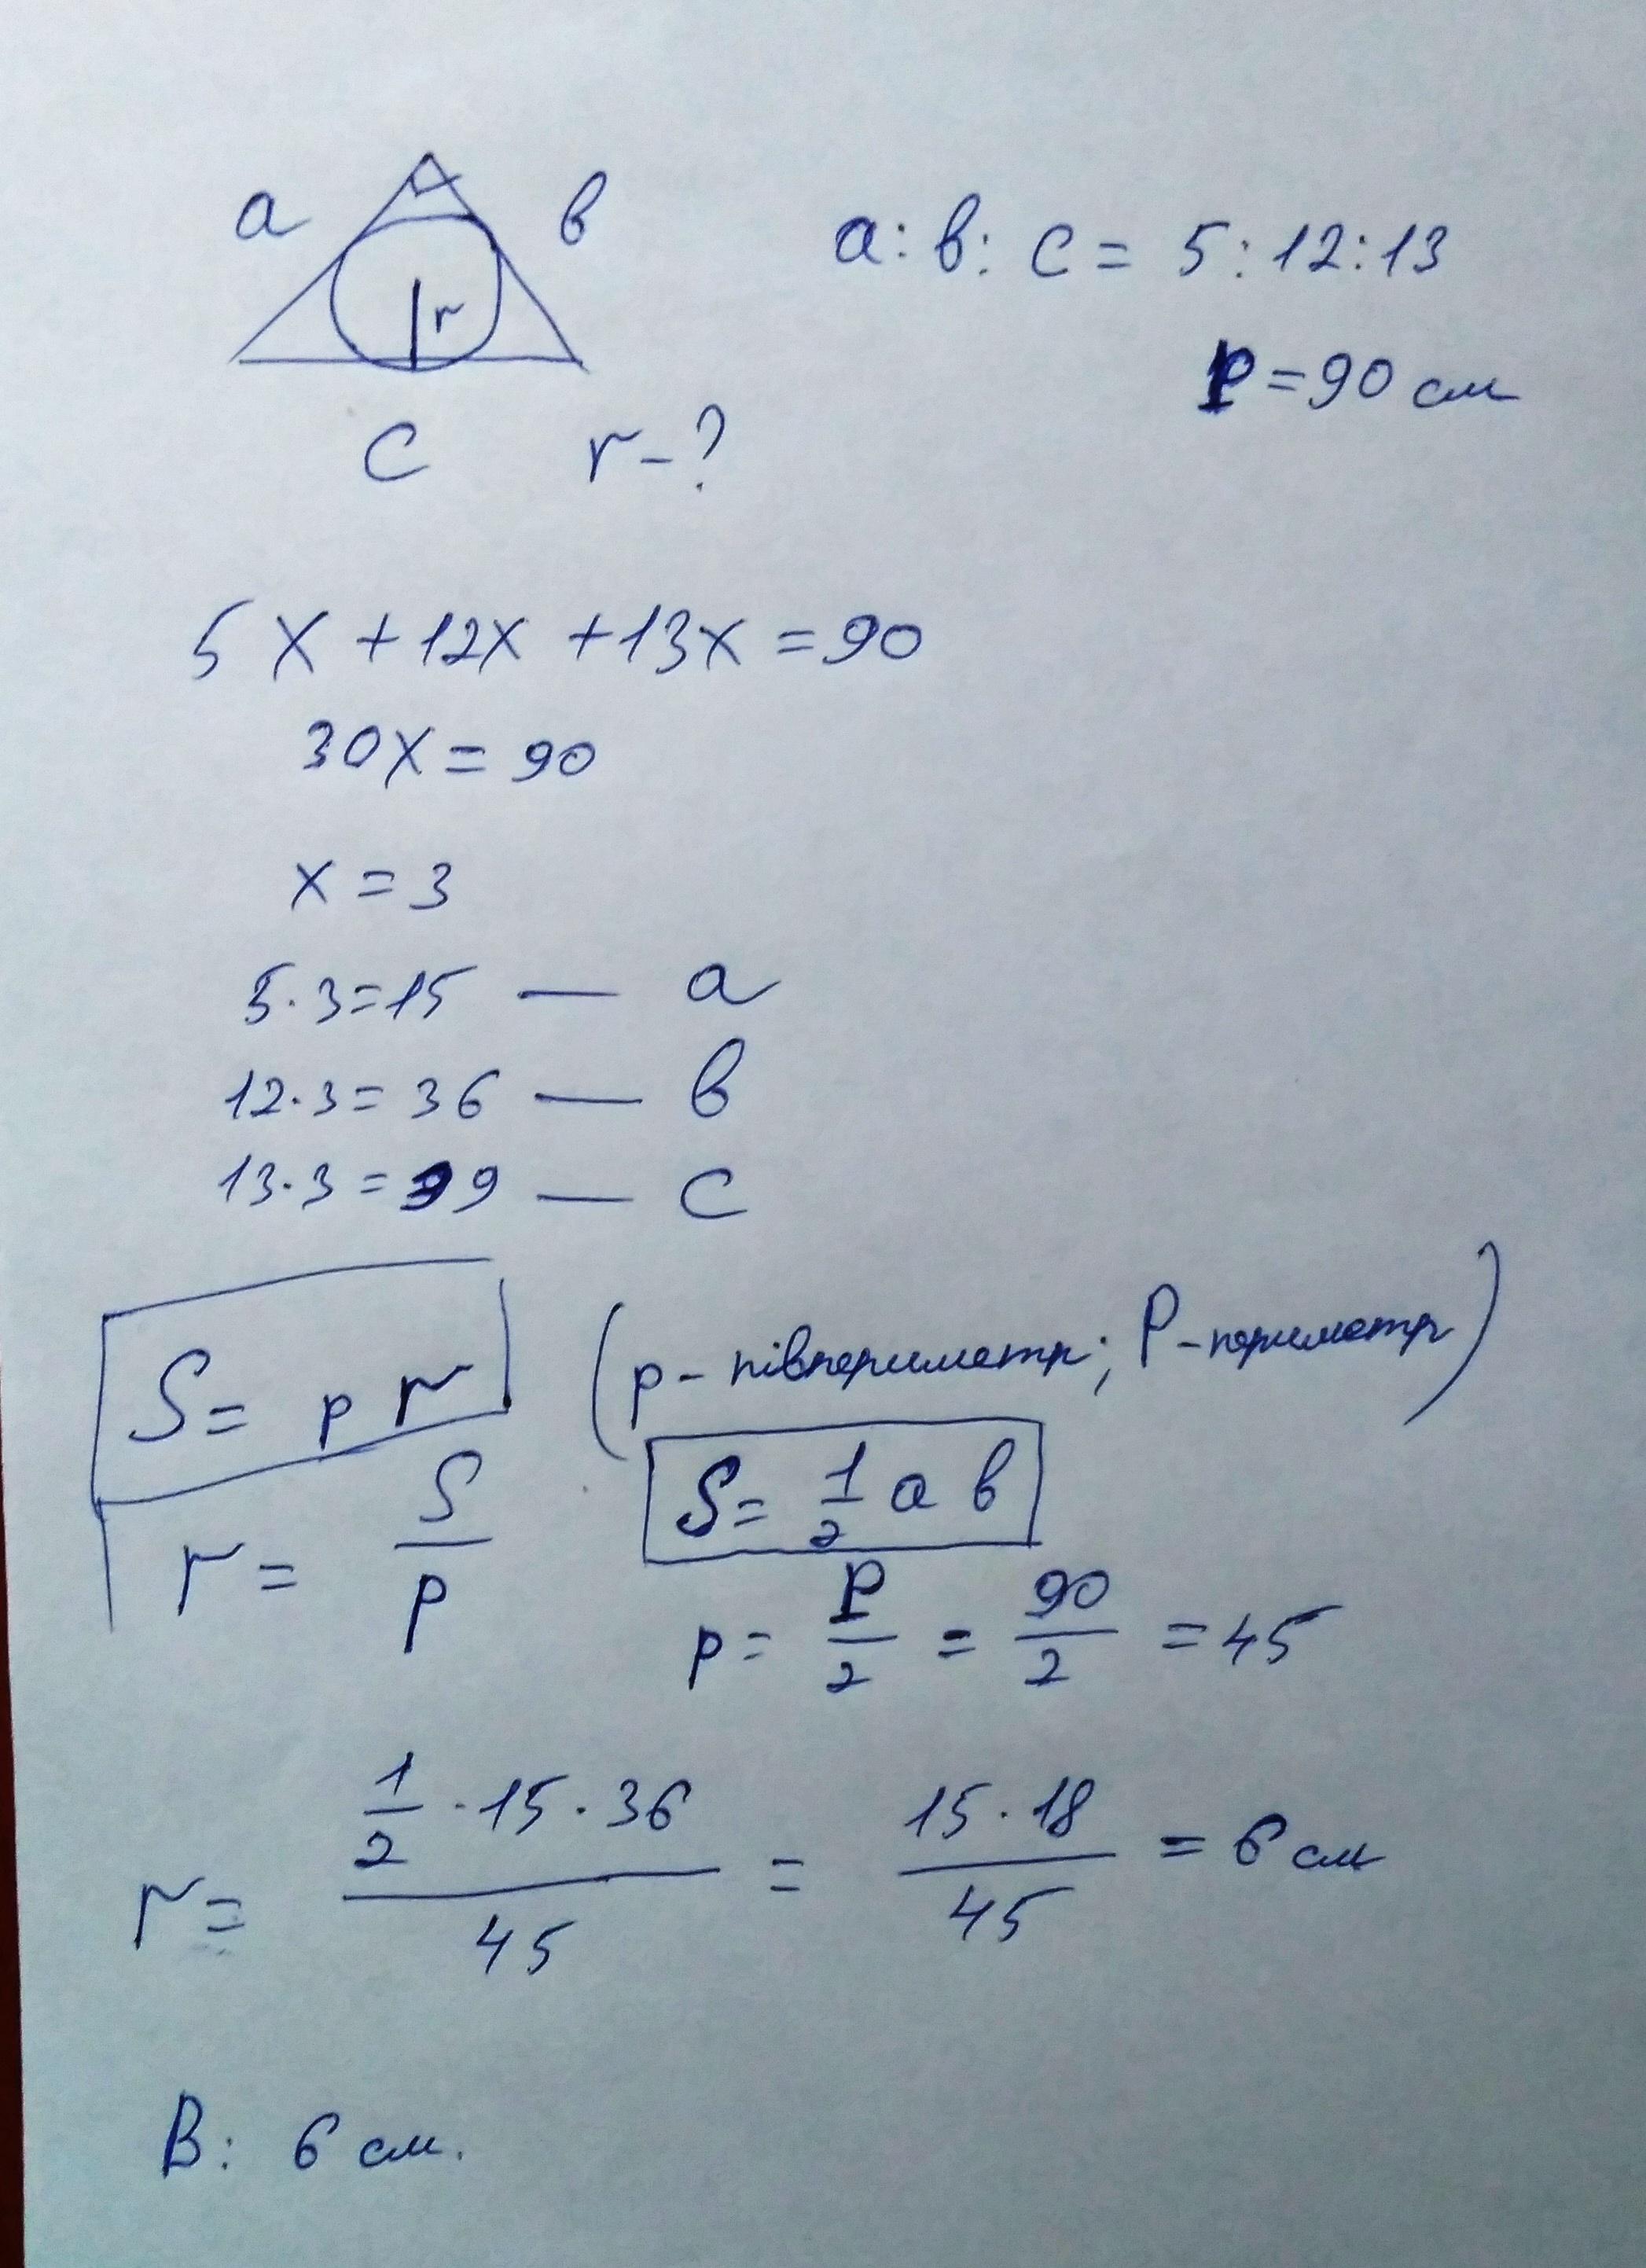 a в a : в : c = 5 : 12 : 13
r P = 90 см
c r - ?
5x + 12x + 13x = 90
30x = 90
x = 3
5·3=15 — a
12·3= 36 — в
13·3 = 39 — c
S = p r (p - півпериметр; P - периметр)
r = S/p S = 1/2 a в
p = P/2 = 90/2 = 45
r = (1/2 · 15 · 36)/45 = (15 · 18)/45 = 6 см
В: 6 см.